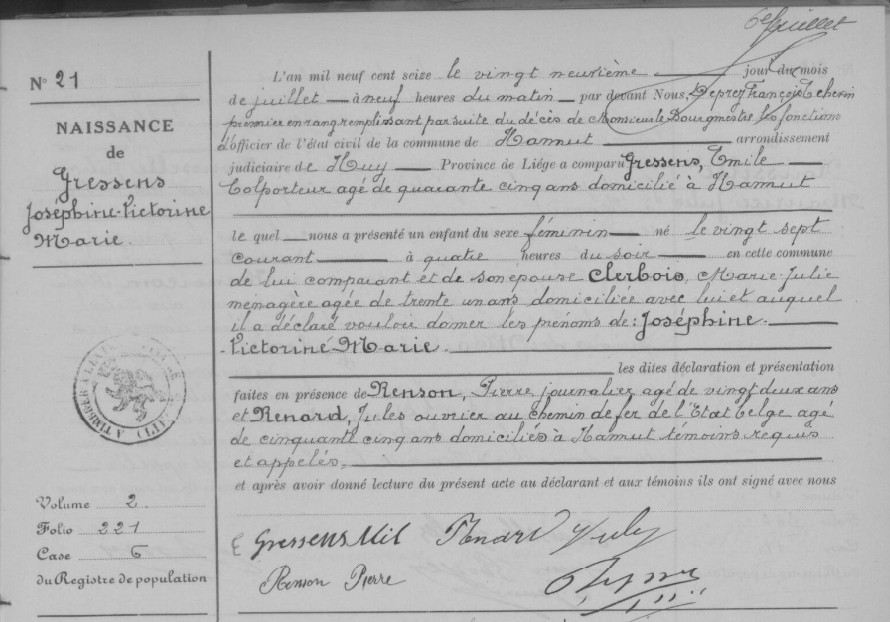 6 Juillet
N° 21
NAISSANCE
de
Gressens
Joséphine-Victorine
Marie.
L'an mil neuf cent seize le vingt neuvième jour du mois
de juillet à neuf heures du matin par devant Nous, Déprez François Echevin
premier en rang remplissant par suite du décès de Monsieur le Bourgmestre les fonctions
d'officier de l'état civil de la commune de Hannut arrondissement
judiciaire de Huy Province de Liége a comparu Gressens, Emile
Colporteur agé de quarante cinq ans domicilié à Hannut
le quel nous a présenté un enfant du sexe féminin né le vingt sept
courant à quatre heures du soir en cette commune
de lui comparant et de son epouse Clerbois, Marie-Julie
ménagère agée de trente un ans domiciliée avec lui et auquel
il a déclaré vouloir donner les prénoms de: Joséphine-
Victorine Marie.
les dites déclaration et présentation
faites en présence de Renson, Pierre, journalier agé de vingt deux ans
et Renard, Jules ouvrier au chemin de fer de l'Etat belge agé
de cinquante cinq ans domiciliés à Hannut témoins requis
et appelés.
et après avoir donné lecture du présent acte au déclarant et aux témoins ils ont signé avec nous
Volume 2.
Folio 221
Case 6
du Registre de population
Gressens Mil Renard Jules
Renson Pierre